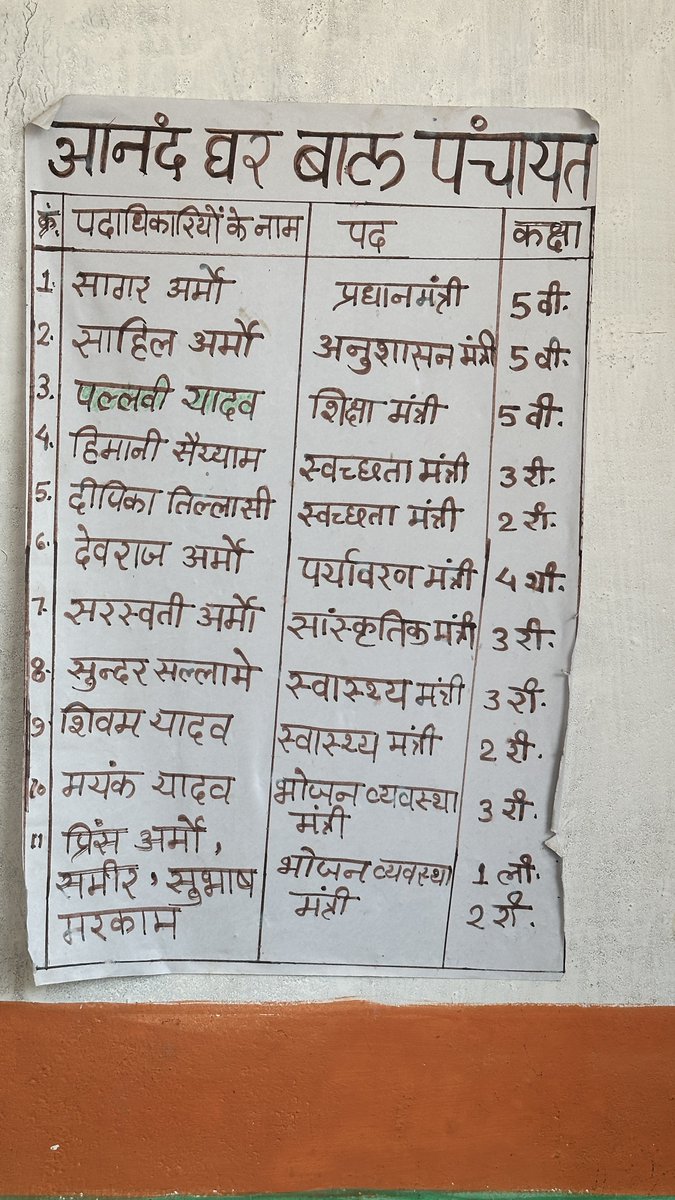 आनंद घर बाल पंचायत
क्रं. पदाधिकारियों के नाम पद कक्षा
1. सागर अर्मो प्रधानमंत्री 5 वी.
2. साहिल अर्मो अनुशासन मंत्री 5 वी.
3. पल्लवी यादव शिक्षा मंत्री 5 वी.
4. हिमानी सैय्याम स्वच्छता मंत्री 3 री.
5. दीपिका तिल्लासी स्वच्छता मंत्री 2 री.
6. देवराज अर्मो पर्यावरन मंत्री 4 थी.
7. सरस्वती अर्मो सांस्कृतिक मंत्री 3 री.
8. सुन्दर सल्लामे स्वास्थ्य मंत्री 3 री.
9 शिवम यादव स्वास्थ्य मंत्री 2 री.
10 मयंक यादव भोजन व्यवस्था मंत्री 3 री.
11 प्रिंस अर्मो, भोजन व्यवस्था 1 ली.
समीर, सुभाष मंत्री 2 री.
मरकाम